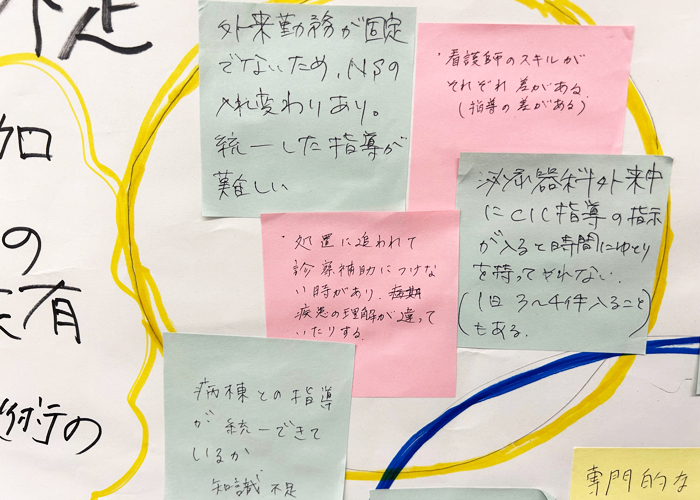 不足
外来勤務が固定
でないため、NSの
入れ変わりあり。
統一した指導が
難しい
・看護師のスキルが
それぞれ差がある
(指導の差がある)
泌尿器科外来中
にCIC指導の指示
が入ると時間にゆとり
を持ってやれない.
(1日3〜4件入ること)
もある.
・処置に追われて
診察補助につけな
い時があり.
疾患の理解が違って
いたりする.
病棟との指導
が統一できて
いるか
知識不足
加
の
有
術の
専門的な